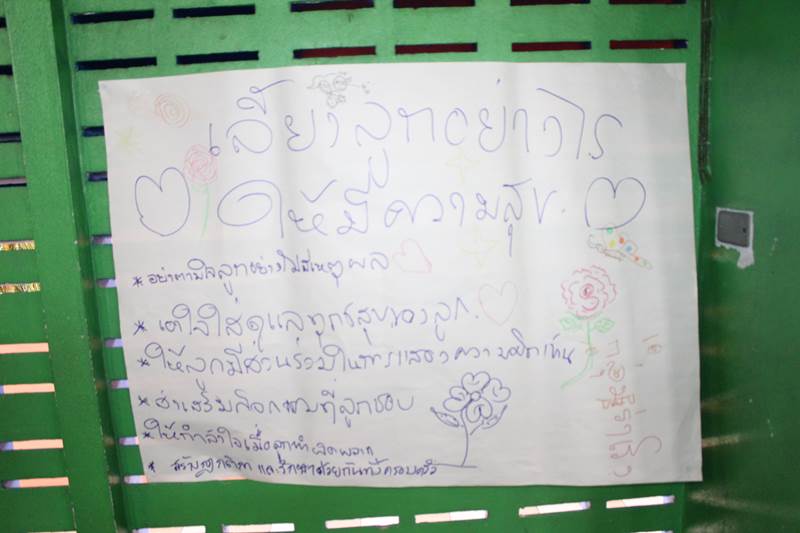 เลี้ยงลูกอย่างไร
ให้มีความสุข.
* อย่าตามใจลูกอย่างไม่มีเหตุผล
* เอาใจใส่ดูแลทุกข์สุขของลูก.
* ให้ลูกมีส่วนร่วมในการแสดงความคิดเห็น
* ส่งเสริมกิจกรรมที่ลูกชอบ
* ให้กำลังใจเมื่อลูกทำผิดพลาด
* สร้างกฎกติกา และรักษาด้วยกันทั้งครอบครัว